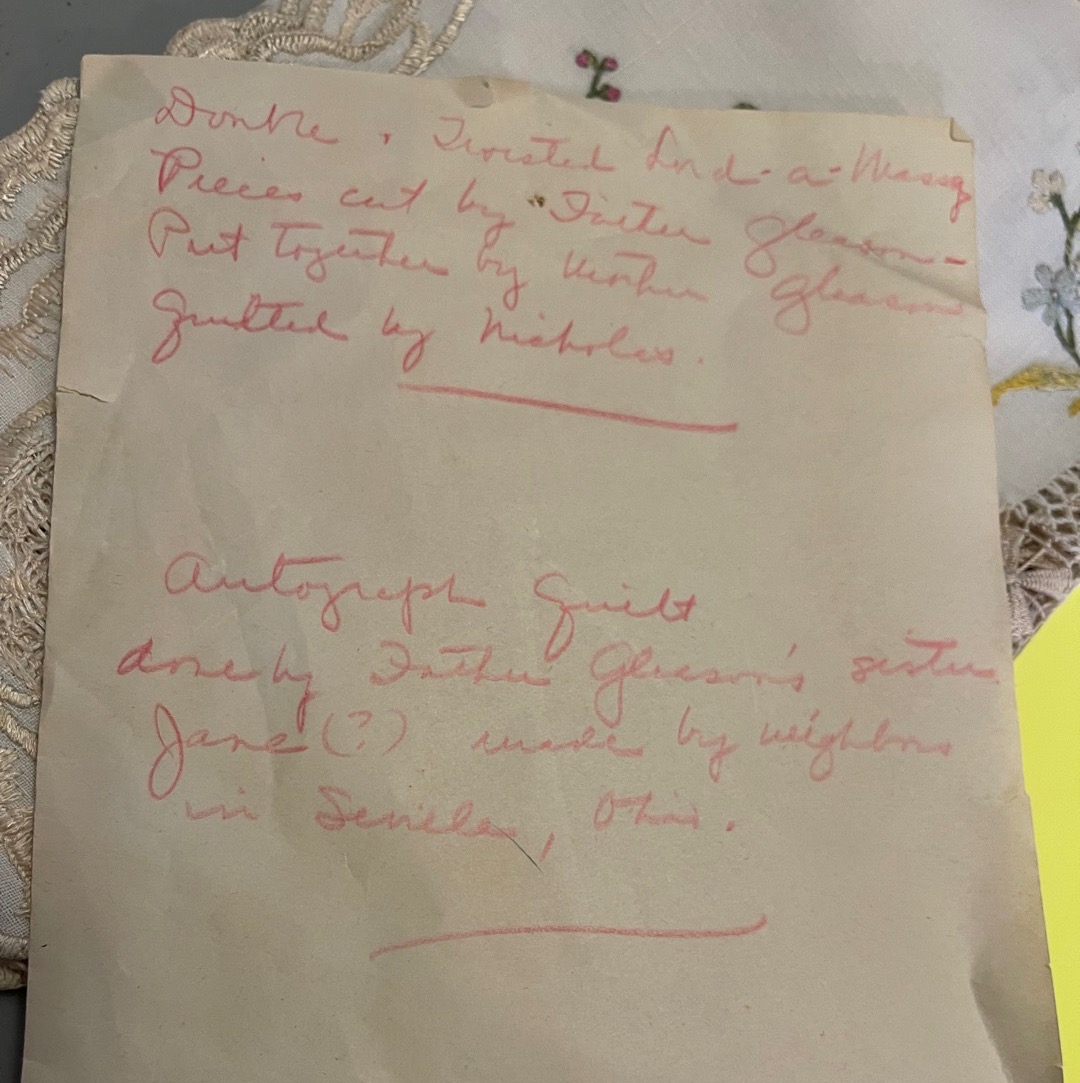 Double, Twisted Lord-a-Massy
Pieces cut by Father Gleason-
Put together by Mother Gleason
Quilted by Nicholas.
Autograph Quilt
done by Father Gleason's sister
Jane (?) made by neighbors
in Seville, Ohio.